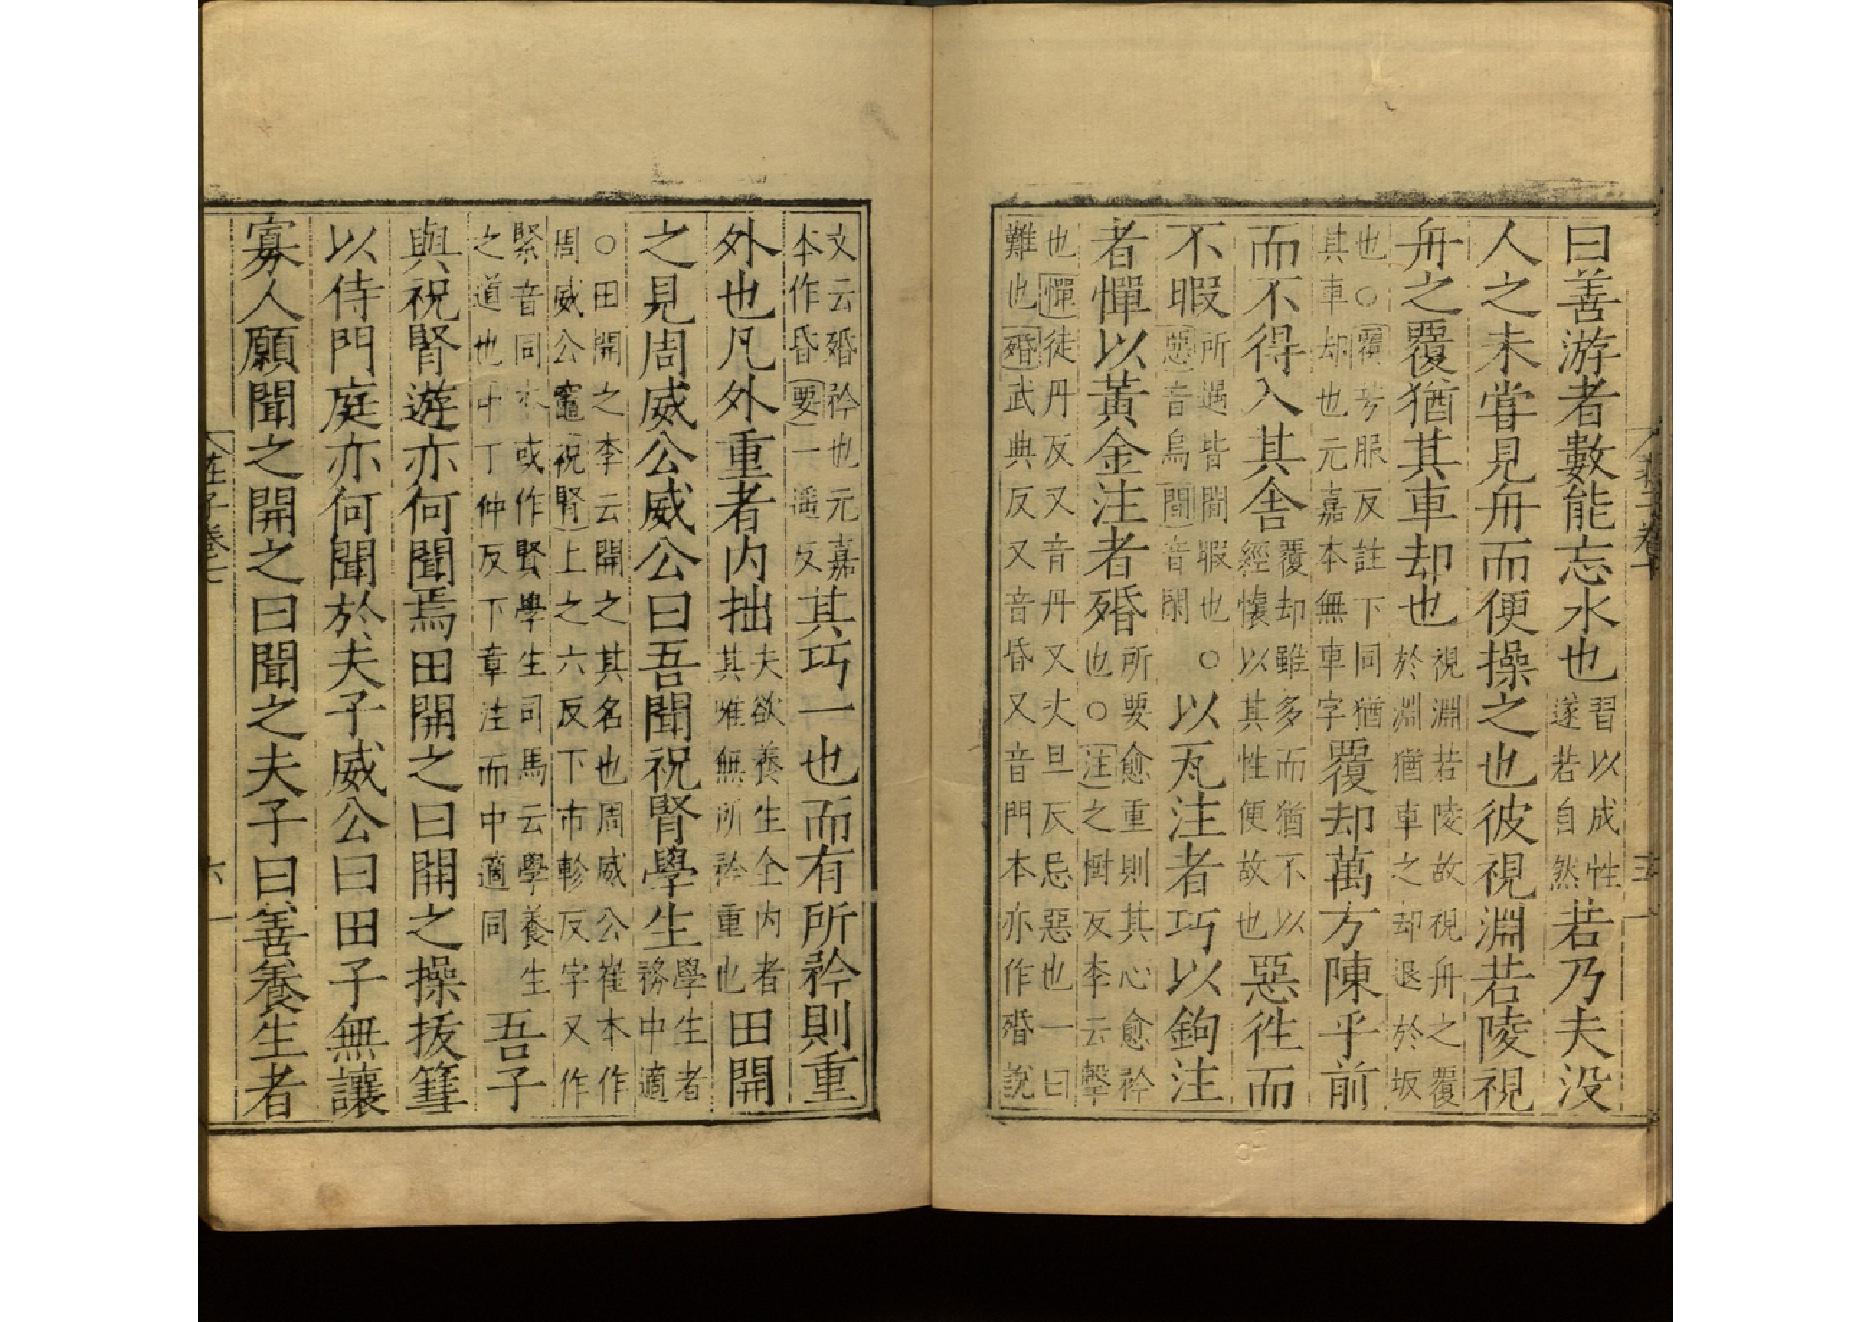 曰善游者數能忘水也習以成性遂若自然若乃夫没
人之未甞見舟而便操之也彼視淵若陵視
舟之覆猶其車却也視淵若陵故視舟之覆於淵猶車之却退於坂
也○覆芳服反註下同猶其車却也元嘉本無車字覆却萬方陳乎前
而不得入其舍覆却雖多而猶不以經懷以其性便故也惡徃而
不暇所遇皆閒暇也○惡音烏閒音閑以瓦注者巧以鉤注
者憚以黃金注者殙所要愈重則其心愈矜也○注之樹反李云擊
也憚徒丹反又音丹又丈旦反忌惡也一曰難也殙武典反又音昏又音門本亦作殙說
莊子卷七
文云殙矜也元嘉本作昏要一遥反其巧一也而有所矜則重
外也凡外重者内拙夫欲養生全内者其唯無所矜重也田開
之見周威公威公曰吾聞祝腎學生學生者務中適
○田開之李云開之其名也周威公崔本作周威公竈祝腎上之六反下市軫反字又作
緊音同本或作賢學生司馬云學養生之道也中丁仲反下章注而中適同吾子
與祝腎遊亦何聞焉田開之曰開之操拔篲
以侍門庭亦何聞於夫子威公曰田子無讓
寡人願聞之開之曰聞之夫子曰善養生者
莊子卷七
六